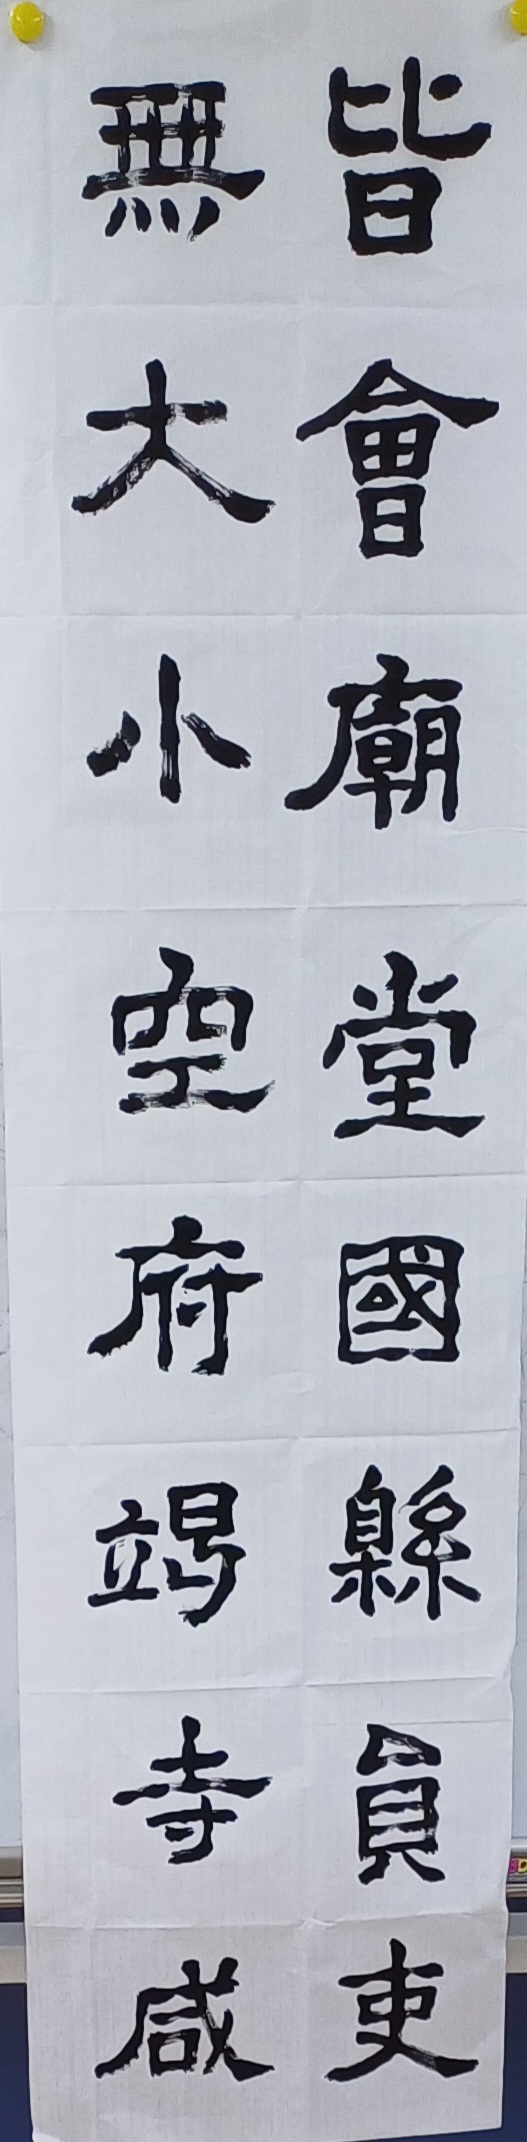 皆會廟堂國縣員吏
無大小空府竭寺咸